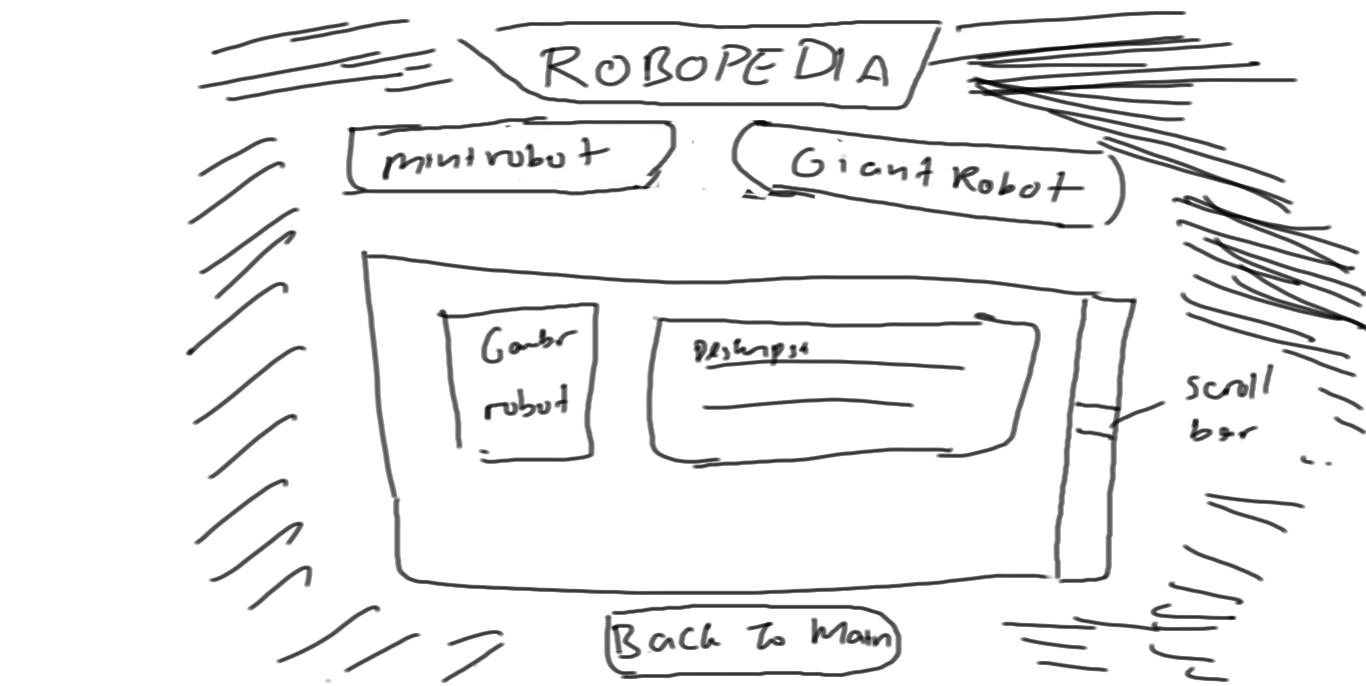 ROBOPEDIA
mini robot
Giant Robot
Gambr
robot
Deskripsi
scroll
bar
Back To Main